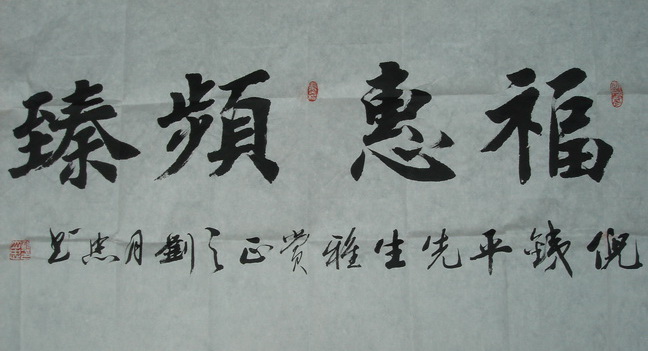 福惠頻臻
倪銕平先生雅賞正之劉月忠题